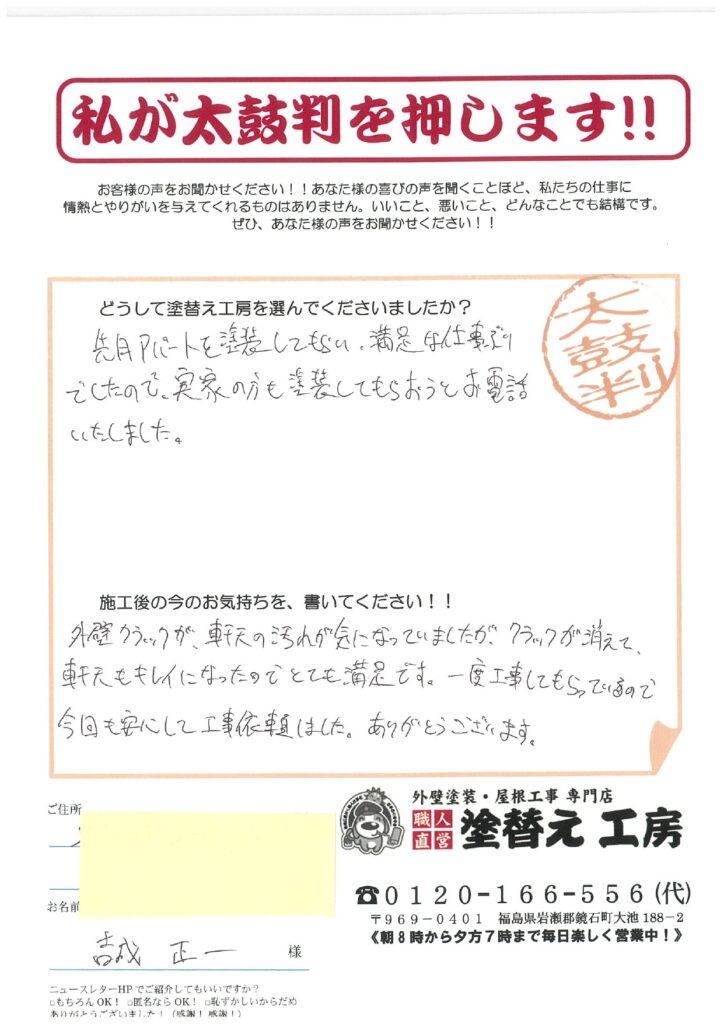 私が太鼓判を押します!!
お客様の声をお聞かせください！！あなた様の喜びの声を聞くことほど、私たちの仕事に
情熱とやりがいを与えてくれるものはありません。いいこと、悪いこと、どんなことでも結構です。
ぜひ、あなた様の声をお聞かせください！！
どうして塗替え工房を選んでくださいましたか？
太鼓判
先月アパートを塗装してもらい、満足な仕事ぶり
でしたので、実家の方も塗装してもらおうとお電話
いたしました。
施工後の今のお気持ちを、書いてください！！
外壁クラックが、軒天の汚れが気になっていましたが、クラックが消えて、
軒天もキレイになったのでとても満足です。一度工事してもらっているので
今回も安心して工事依頼しました。ありがとうございます。
ご住所
外壁塗装・屋根工事 専門店
職人直営 塗替え工房
☎0120-166-556(代)
〒969-0401 福島県岩瀬郡鏡石町大池188-2
《朝8時から夕方7時まで毎日楽しく営業中！》
お名前
吉成 正一 様
ニュースレターHPでご紹介してもいいですか？
□もちろんOK！ □匿名ならOK！ □恥ずかしいからだめ
ありがとうございました！（感謝！感謝！）